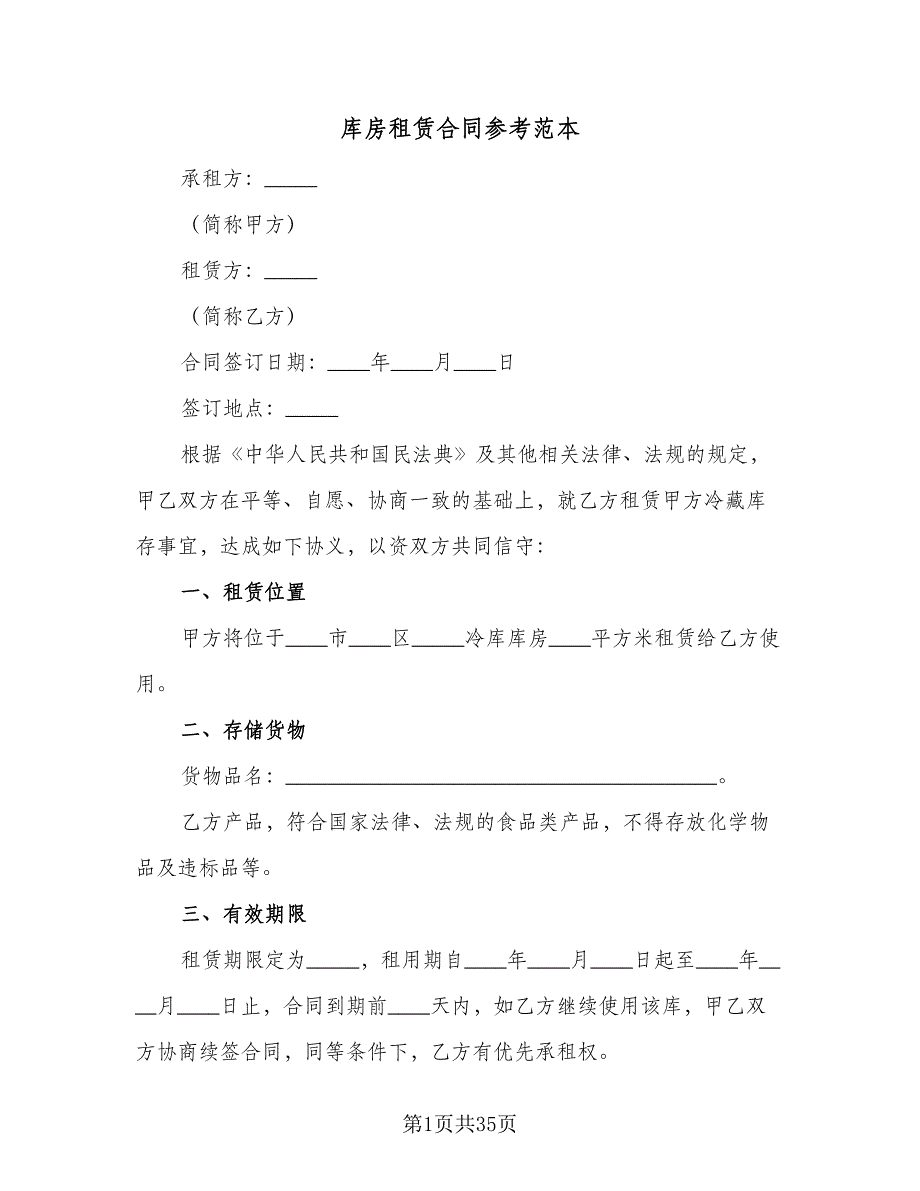 库房租赁合同参考范本
承租方：_____
（简称甲方）
租赁方：_____
（简称乙方）
合同签订日期：____年____月____日
签订地点：_____
根据《中华人民共和国民法典》及其他相关法律、法规的规定，
甲乙双方在平等、自愿、协商一致的基础上，就乙方租赁甲方冷藏库
存事宜，达成如下协义，以资双方共同信守：
一、租赁位置
甲方将位于____市____区_____冷库库房____平方米租赁给乙方使
用。
二、存储货物
货物品名：_________________________________________。
乙方产品，符合国家法律、法规的食品类产品，不得存放化学物
品及违标品等。
三、有效期限
租赁期限定为_____，租用期自____年____月____日起至____年__
__月____日止，合同到期前____天内，如乙方继续使用该库，甲乙双
方协商续签合同，同等条件下，乙方有优先承租权。
第1页共35页